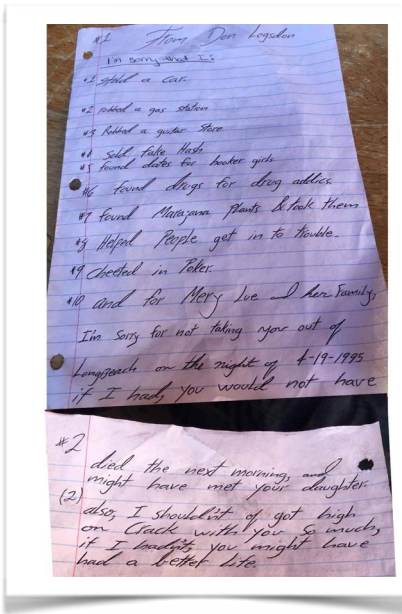 #1 From Don Logsdon
I'm sorry that I:
#1 Stold a Car.
#2 robbed a gas station
#3 Robbed a guitar Store
#4 Sold fake Hash
#5 found dates for hooker girls
#6 found drugs for drug addics
#7 found Marajana Plants & took them
#8 Helped People get in to trouble.
#9 cheeted in Poker.
#10 and for Mery Lue and her Family,
I'm Sorry for not taking you out of
on the night of 4-19-1995
if I had, you would not have
#2
died the next morning, and
might have met your daughter.
(2)
also, I should'nt of got high
on Crack with you So much,
if I hadn't, you might have
had a better Life.